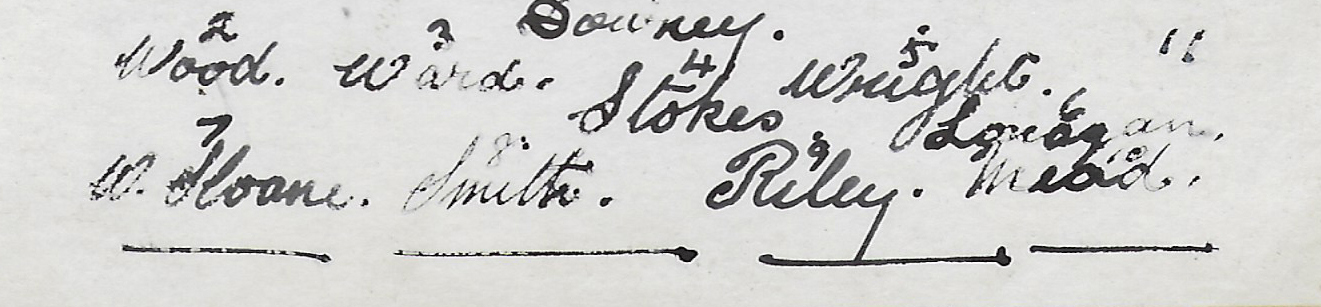 Downey.
2 3 4 5 "
Wood. Ward. Stokes Wright.
6
7 8. 9
W. Sloane. Smith. Riley. Mead.